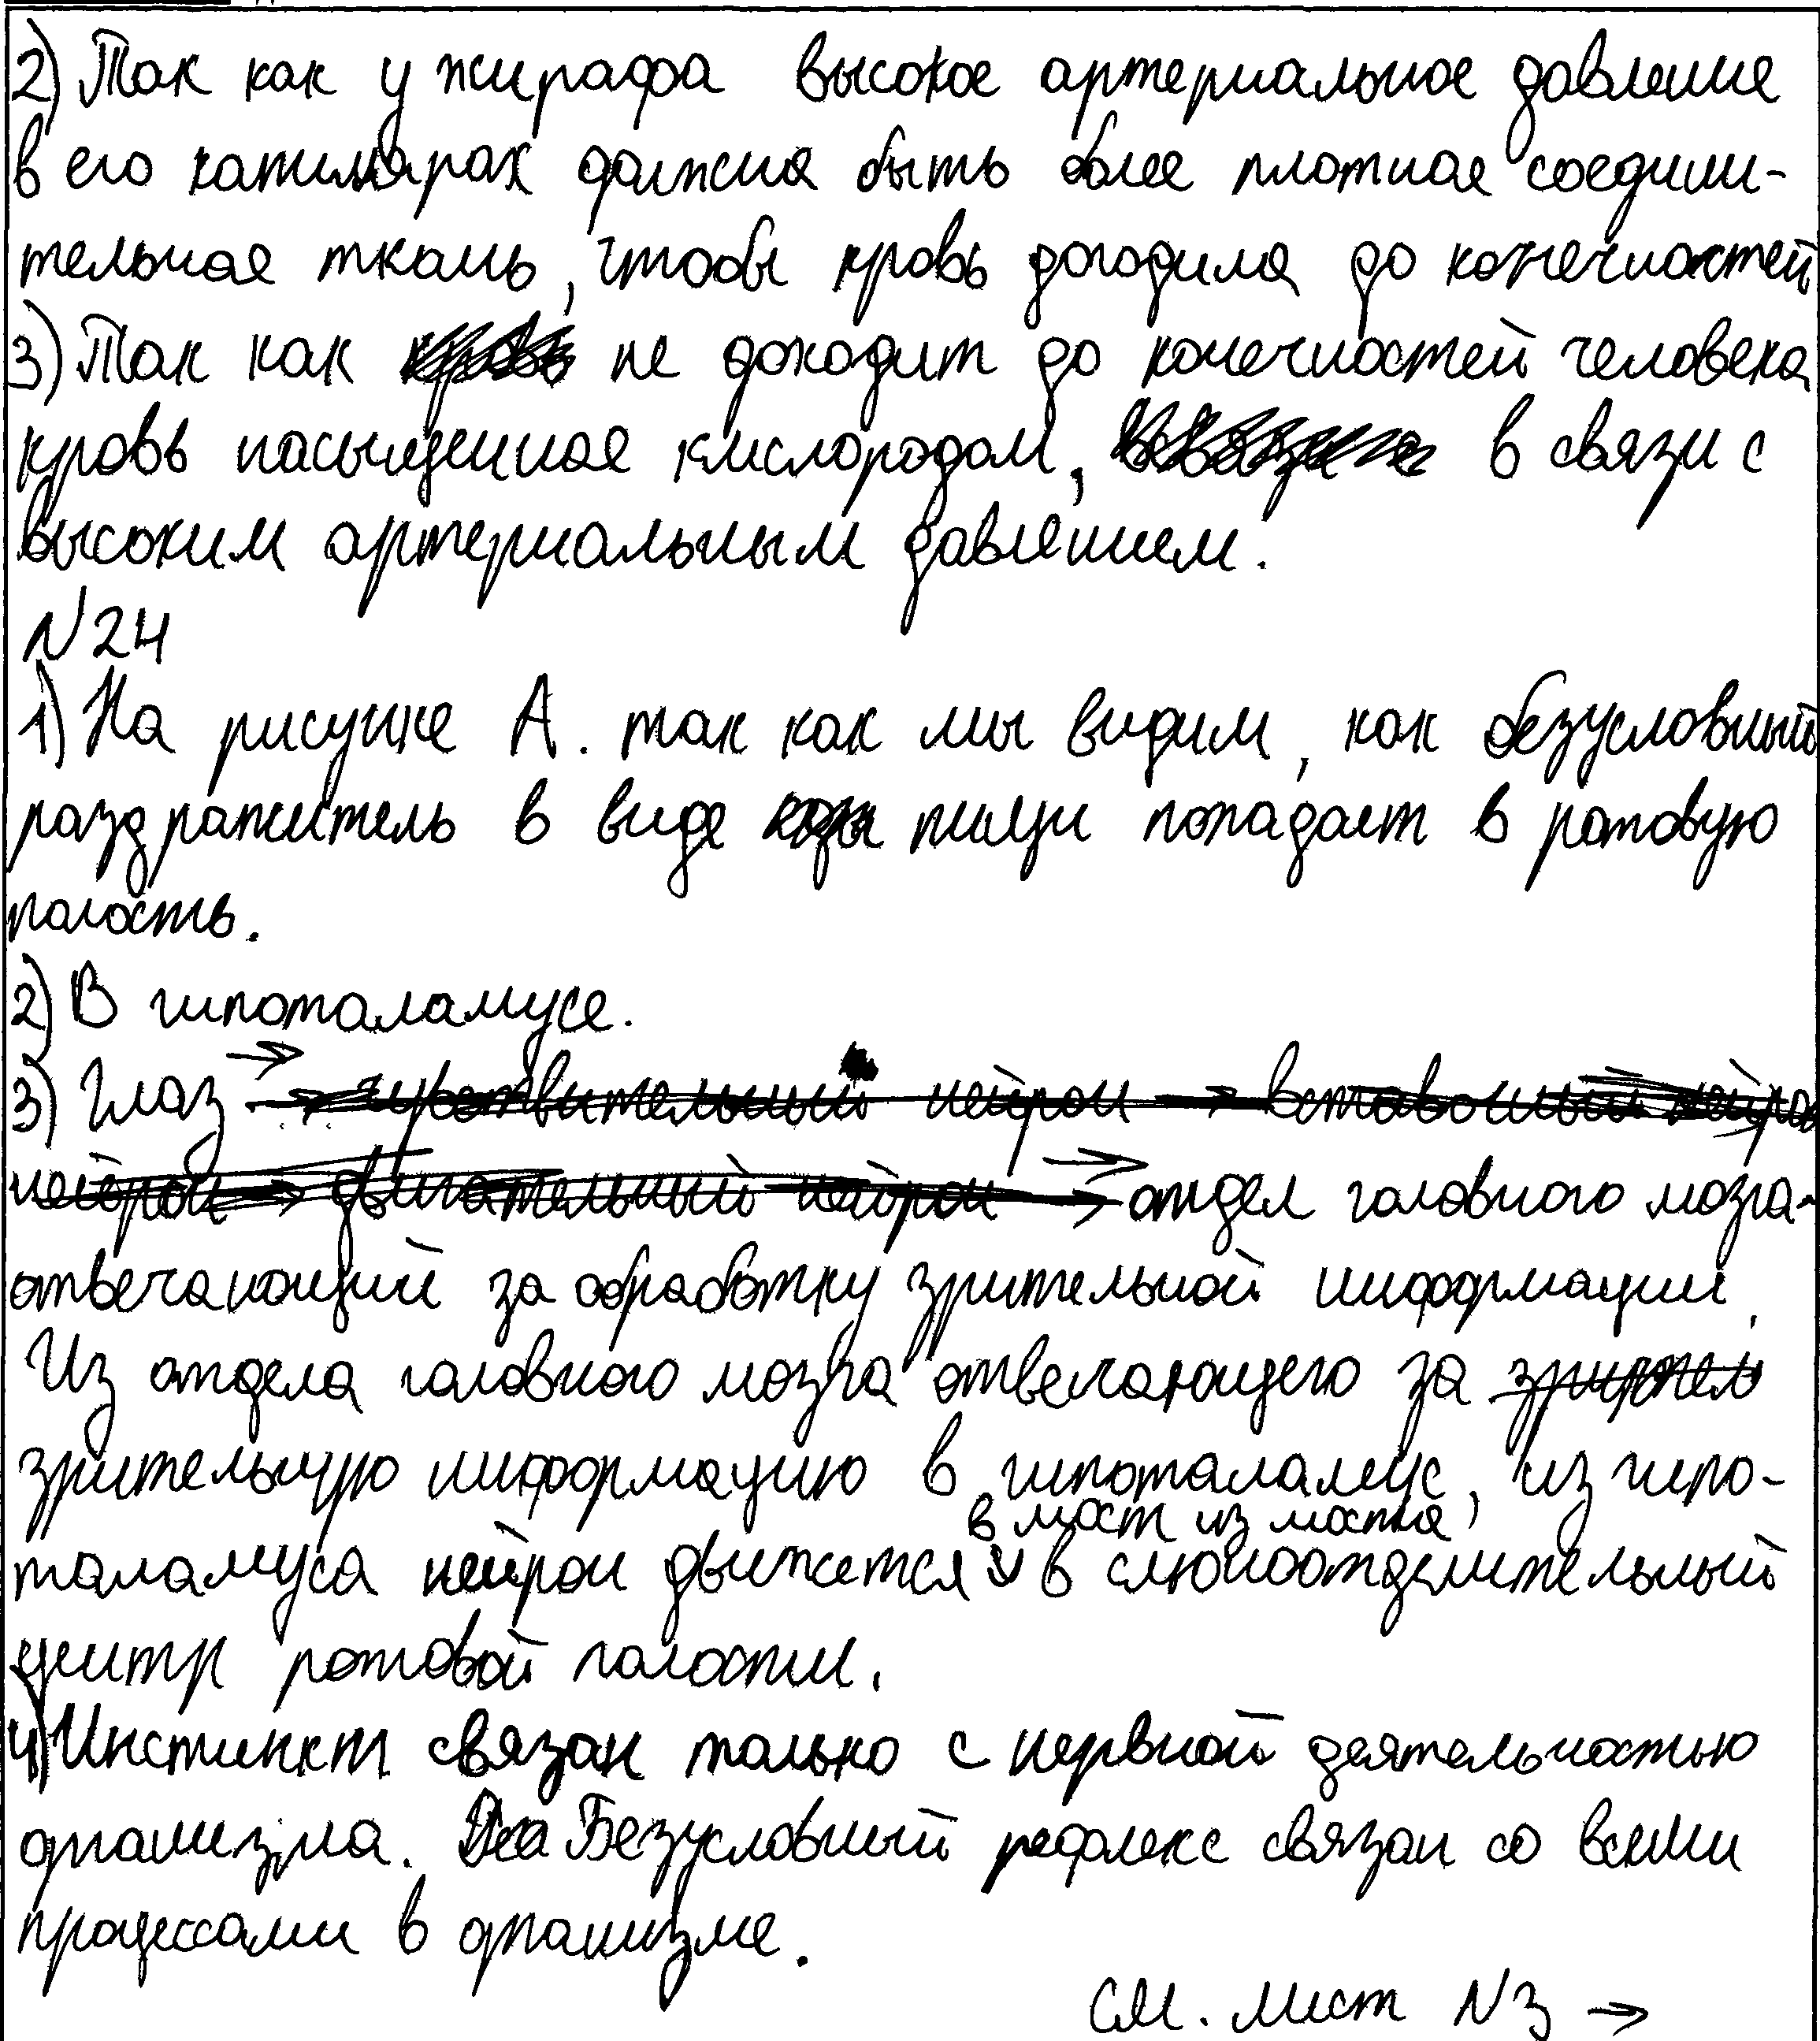 2) Так как у жирафа высокое артериальное давление
в его капилярах должна быть более плотная соедини-
тельная ткань, чтобы кровь доходила до конечностей
3) Так как не доходит до конечностей человека
кровь насыщенная кислородом, в связи с
высоким артериальным давлением.
N24
1) На рисунке А. так как мы видим, как безусловный
раздражитель в виде пищи попадает в ротовую
полость.
2) В гипоталамусе.
3) Глаз → чувствительный нейрон → вставочный нейрон
нейрон → двигательный нейрон → отдел головного мозга-
отвечающий за обработку зрительной информации.
Из отдела головного мозга отвечающего за зрител
зрительную информацию в гипоталамус, из гипо-
в мост из моста,
таламуса нейрон движется в слюноотделительный
центр ротовой полости.
4) Инстинкт связан только с нервной деятельностью
организма. Безусловный рефлекс связан со всеми
процессами в организме.
См. лист N3 →